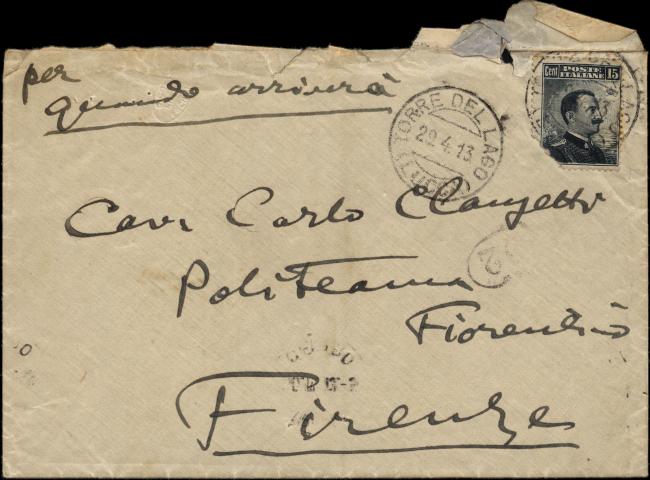 per
quando arriverà
TORRE DEL LAGO (LUCCA)
29.4.13
Cent POSTE 15
ITALIANE
Cav Carlo Clausetti
Politeama
Fiorentino
Firenze